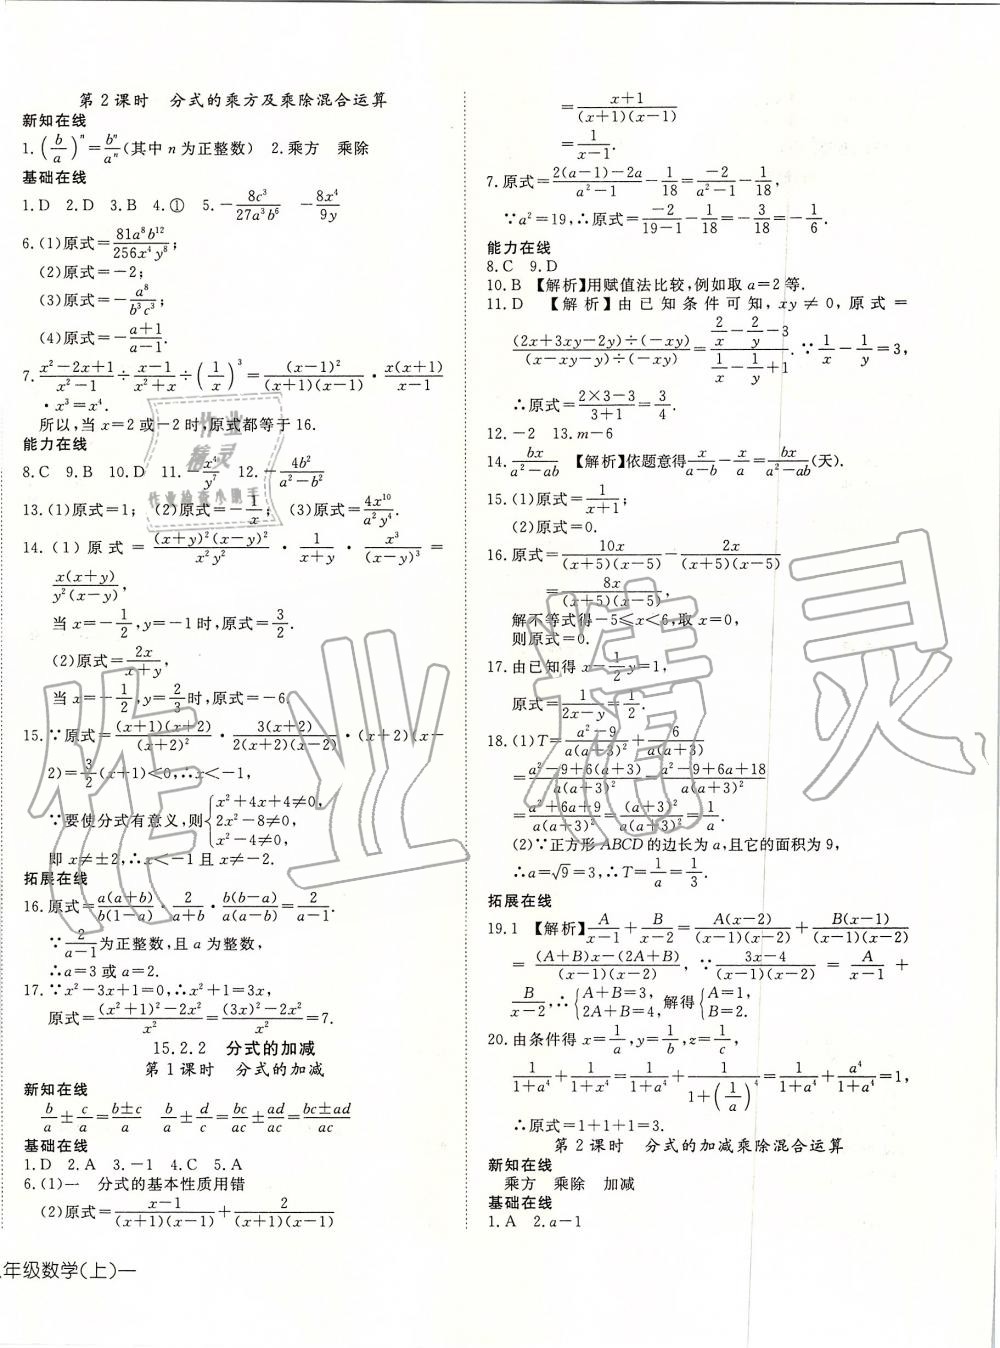 第2课时 分式的乘方及乘除混合运算
新知在线
1. (b/a)^n=b^n/a^n(其中n为正整数) 2.乘方 乘除
基础在线
1.D 2.D 3.B 4.① 5.-8c³/27a³b⁶ -8x⁴/9y
6.(1)原式=81a⁸b¹²/256x⁴y⁸;
(2)原式=-2;
(3)原式=-a⁸/b³c³;
(4)原式=-(a+1)/(a-1).
7.(x²-2x+1)/(x²-1)÷(x-1)/(x²+x)÷(1/x)³=(x-1)²/(x+1)(x-1)·x(x+1)/(x-1)
·x³=x⁴.
所以,当x=2或-2时,原式都等于16.
能力在线
8.C 9.B 10.D 11.-x⁴/y⁷ 12.-4b²/(a²-b²)
13.(1)原式=1; (2)原式=-1/x; (3)原式=4x¹⁰/a²y⁴.
14.(1)原式=(x+y)²(x-y)²/x²y²·1/(x+y)·x³/(x-y)³=
x(x+y)/y²(x-y),
当x=-1/2,y=-1时,原式=3/2.
(2)原式=2x/(x+y),
当x=-1/2,y=2/3时,原式=-6.
15.∵原式=(x+1)(x+2)/(x+2)²·3(x+2)/2(x+2)(x-2)·(x+2)(x-
2)=3/2(x+1)<0,∴x<-1,
∵要使分式有意义,则{x²+4x+4≠0, 2x²-8≠0, x²-4≠0,
即x≠±2,∴x<-1且x≠-2.
拓展在线
16.原式=a(a+b)/b(1-a)·2/(a+b)·b(b-a)/a(a-b)=2/(a-1).
∵2/(a-1)为正整数,且a为整数,
∴a=3或a=2.
17.∵x²-3x+1=0,∴x²+1=3x,
原式=((x²+1)²-2x²)/x²=((3x)²-2x²)/x²=7.
15.2.2 分式的加减
第1课时 分式的加减
新知在线
b/a±c/a=(b±c)/a b/a±d/c=bc/ac±ad/ac=(bc±ad)/ac
基础在线
1.D 2.A 3.-1 4.C 5.A
6.(1)一 分式的基本性质用错
(2)原式=(x-1)/(x+1)(x-1)+2/(x+1)(x-1)
年级数学(上)—
=(x+1)/(x+1)(x-1)
=1/(x-1).
7.原式=(2(a-1)-2a)/(a²-1)-1/18=-2/(a²-1)-1/18,
∵a²=19,∴原式=-2/(19-1)-1/18=-3/18=-1/6.
能力在线
8.C 9.D
10.B 【解析】用赋值法比较,例如取a=2等.
11.D 【解析】由已知条件可知,xy≠0,原式=
(2x+3xy-2y)÷(-xy)/(x-xy-y)÷(-xy)=(2/x-2/y-3)/(1/x-1/y+1).∵1/x-1/y=3,
∴原式=(2×3-3)/(3+1)=3/4.
12.-2 13.m-6
14.bx/(a²-ab) 【解析】依题意得x/(a-b)-x/a=bx/(a²-ab)(天).
15.(1)原式=1/(x+1);
(2)原式=0.
16.原式=10x/(x+5)(x-5)-2x/(x+5)(x-5)
=8x/(x+5)(x-5),
解不等式得-5≤x<6,取x=0,
则原式=0.
17.由已知得x-1/2y=1,
原式=1/(2x-y)=1/2.
18.(1)T=(a²-9)/a(a+3)²+6/a(a+3)
=(a²-9+6(a+3))/a(a+3)²=(a²-9+6a+18)/a(a+3)²
=(a²+6a+9)/a(a+3)²=(a+3)²/a(a+3)²=1/a.
(2)∵正方形ABCD的边长为a,且它的面积为9,
∴a=√9=3,∴T=1/a=1/3.
拓展在线
19.1 【解析】A/(x-1)+B/(x-2)=(A(x-2))/(x-1)(x-2)+(B(x-1))/(x-1)(x-2)
=((A+B)x-(2A+B))/(x-1)(x-2),∵(3x-4)/(x-1)(x-2)=A/(x-1)+
B/(x-2),∴{A+B=3, 2A+B=4,解得{A=1, B=2.
20.由条件得x=1/a,y=1/b,z=1/c,
1/(1+a⁴)+1/(1+x⁴)=1/(1+a⁴)+1/(1+(1/a)⁴)=1/(1+a⁴)+a⁴/(1+a⁴)=1,
∴原式=1+1+1=3.
第2课时 分式的加减乘除混合运算
新知在线
乘方 乘除 加减
基础在线
1.A 2.a-1
作业精灵
作业检查小助手
作业精灵